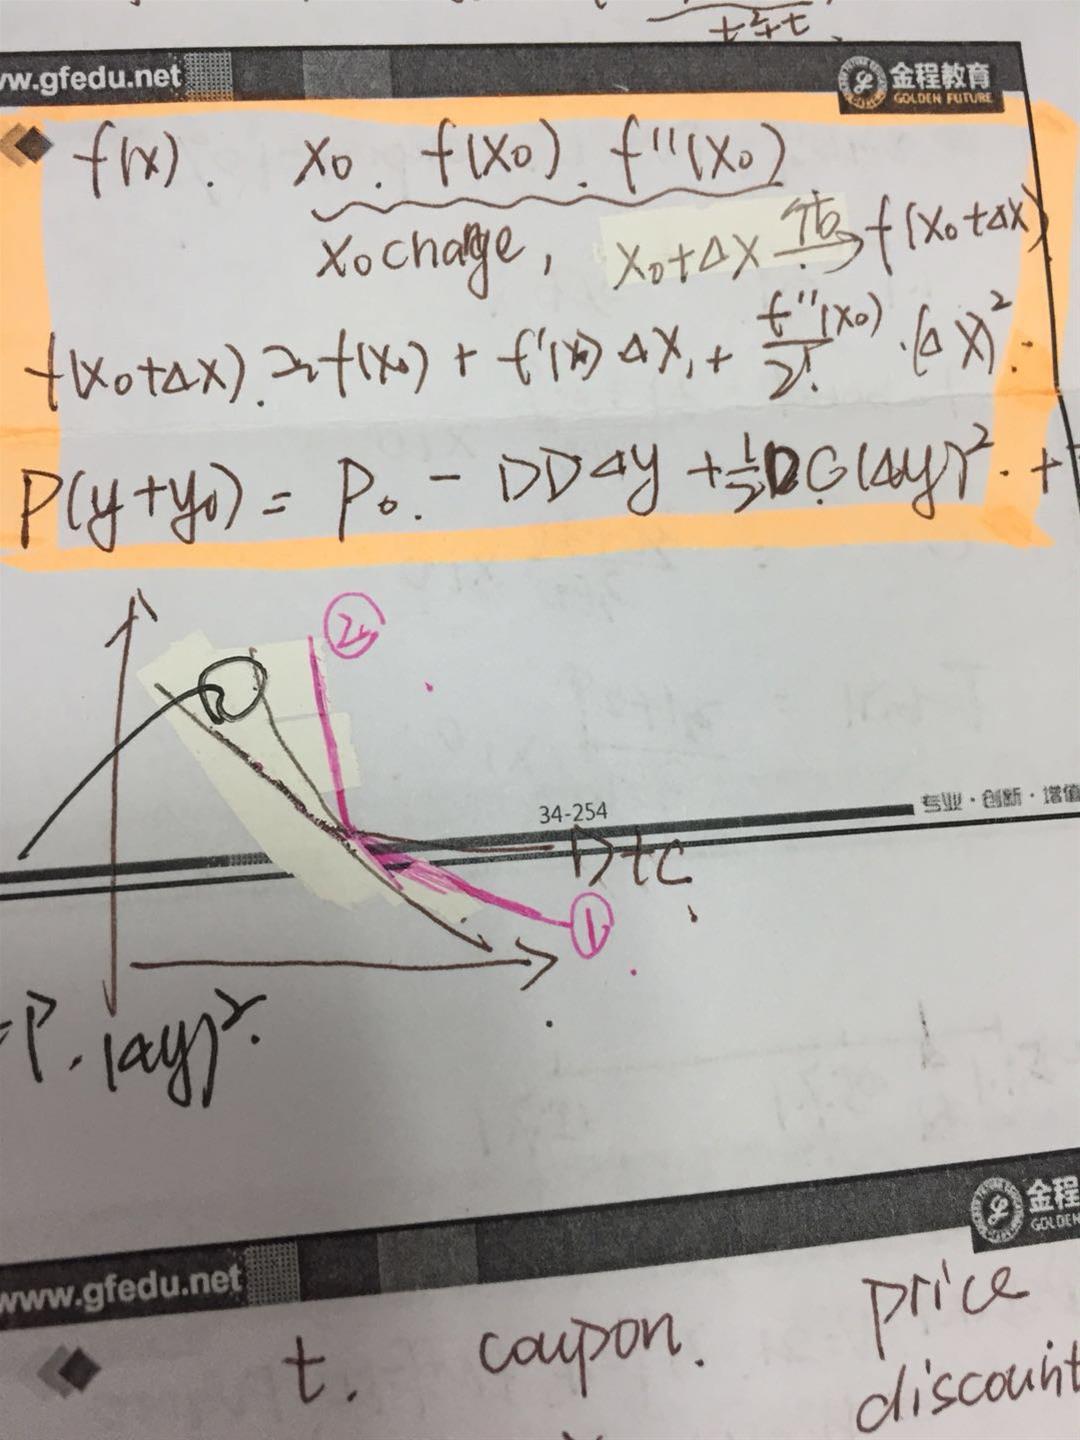 t²+t
ww.gfedu.net
金程教育
GOLDEN FUTURE
f(x). x₀. f(x₀). f''(x₀)
x₀ change, x₀+Δx → f(x₀+Δx)
f(x₀+Δx). ≈ f(x₀) + f'(x₀) Δx, + f''(x₀)/2! ·(Δx)².
P(y+y₀) = P₀. - DDΔy + ½DC(Δy)². +
②
34-254
专业·创新·增值
D+C
①
=P. (Δy)².
金程
GOLDEN
www.gfedu.net
t. coupon. price
discount